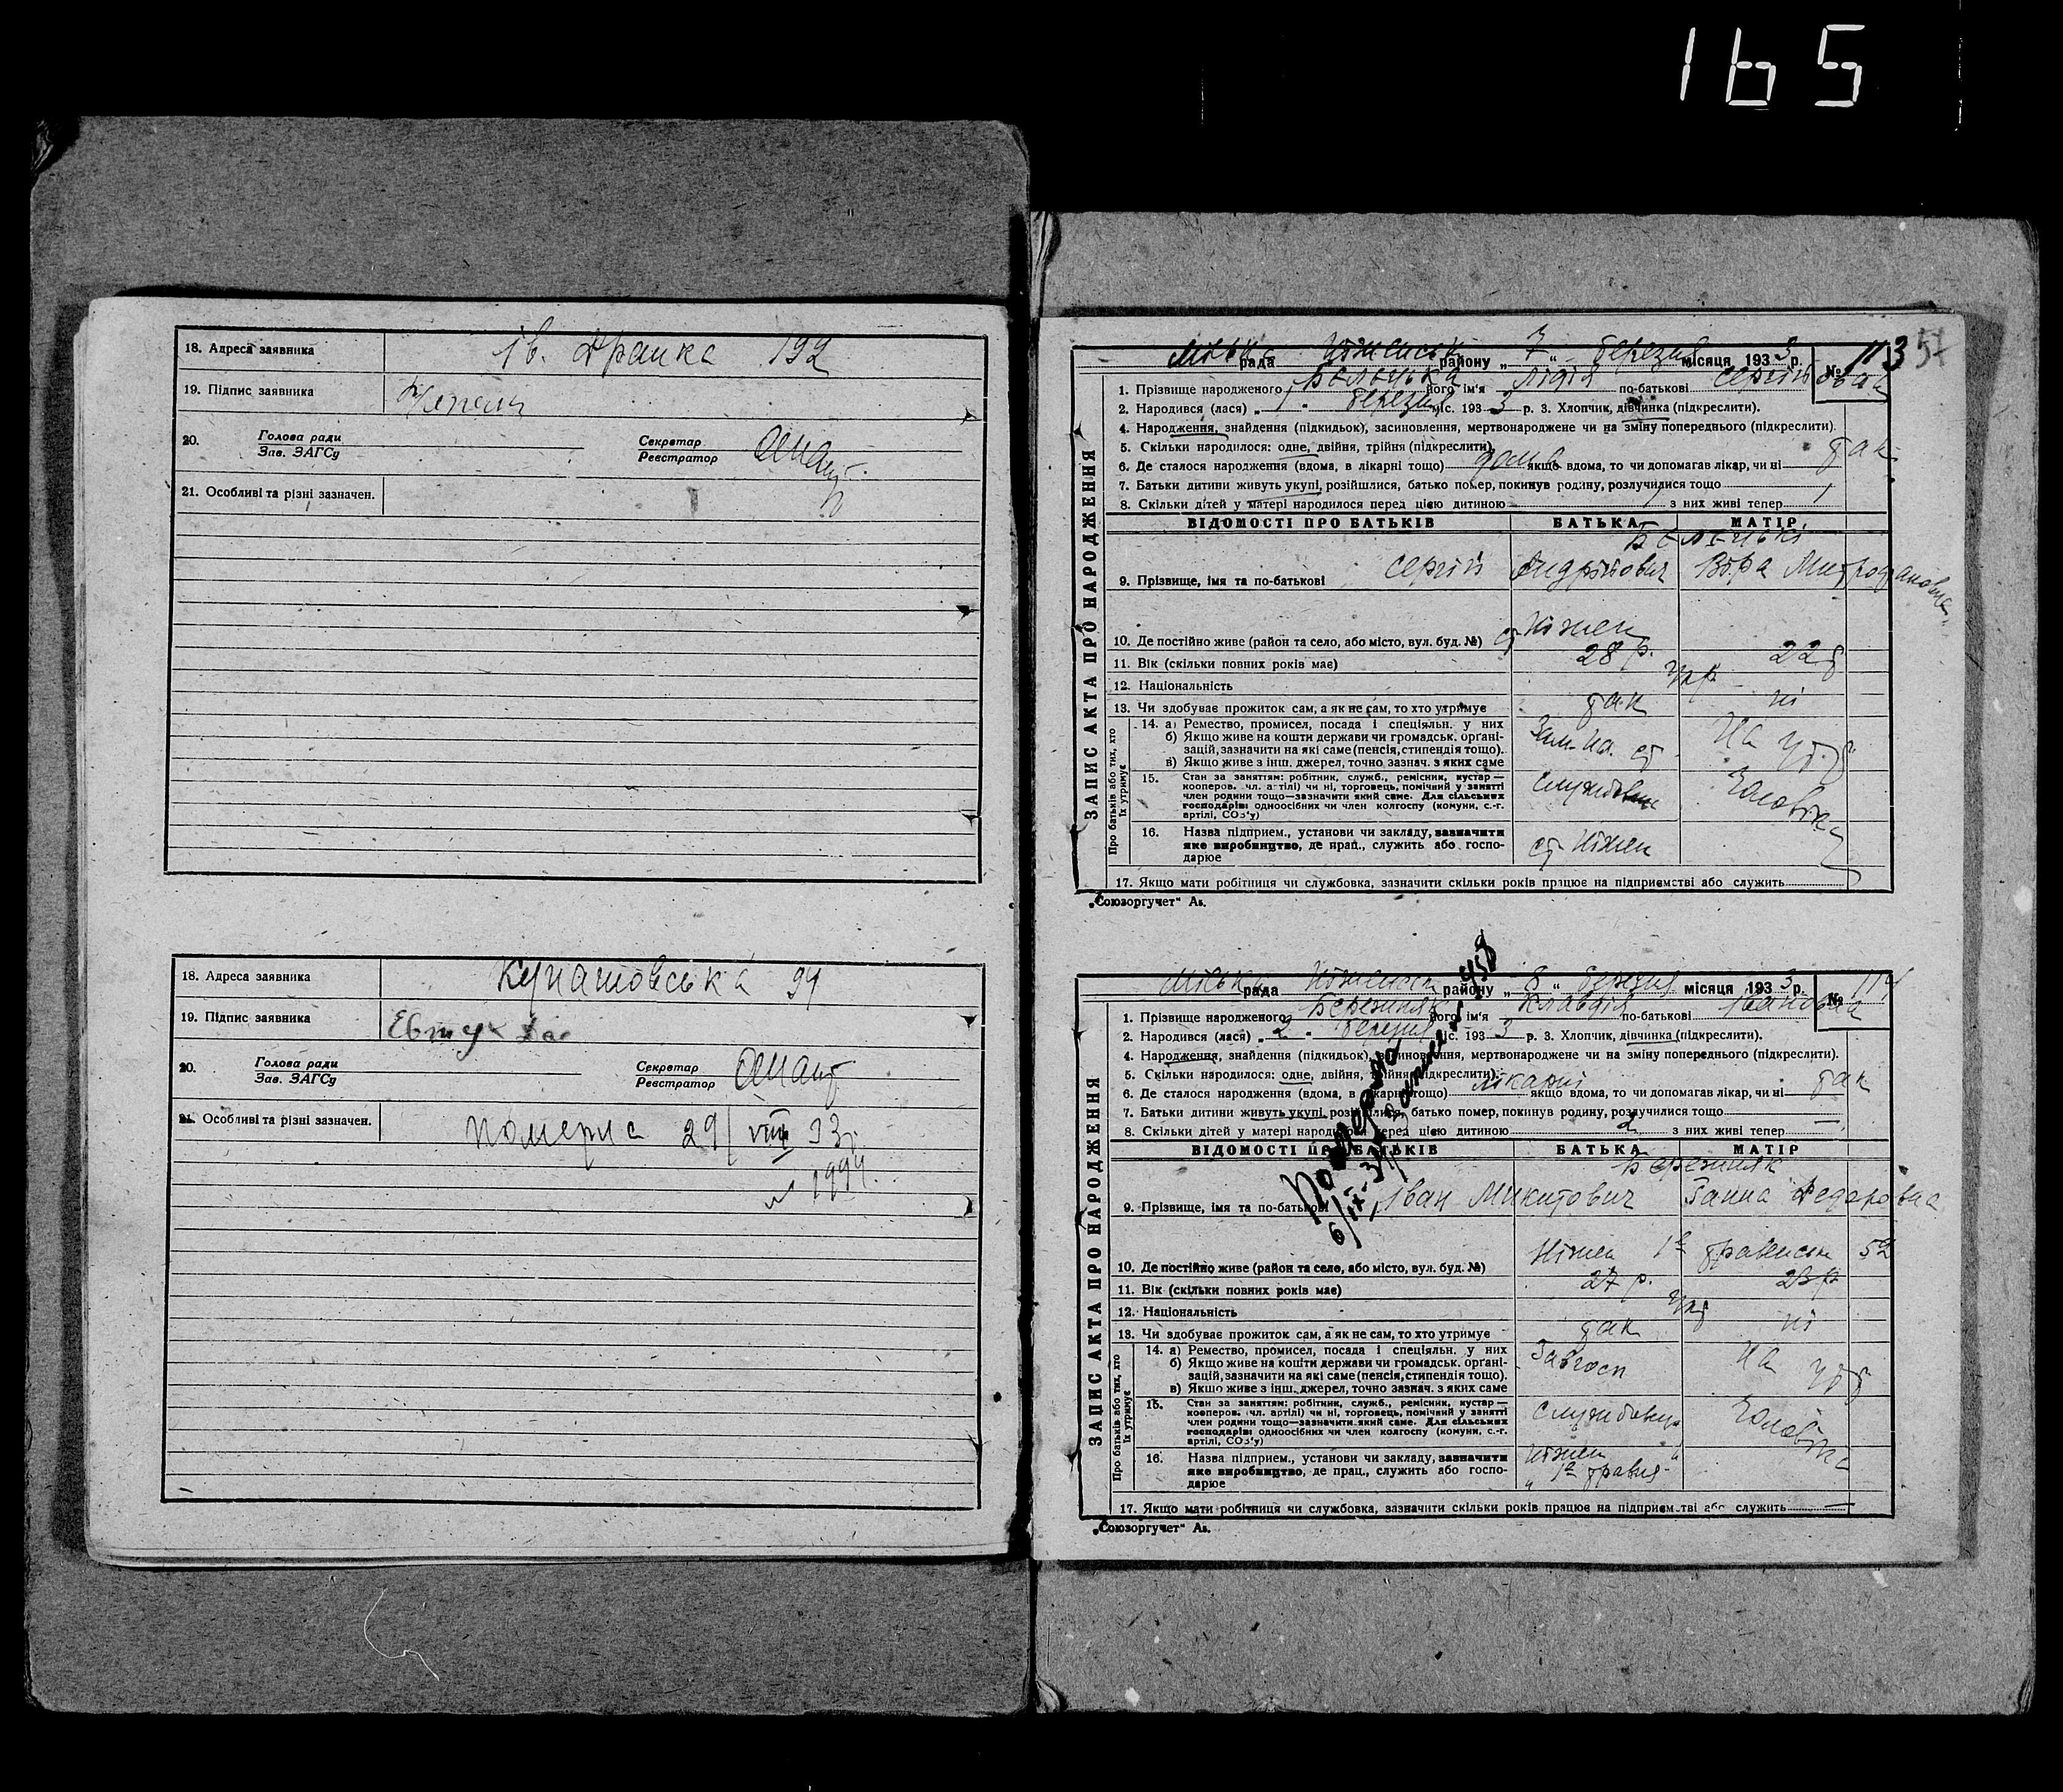 165
18. Адреса заявника Ів. Франка 192
19. Підпис заявника
20. Голова ради Секретар
Зав. ЗАГСу Реєстратор
21. Особливі та різні зазначен.
18. Адреса заявника Кунашовська 94
19. Підпис заявника
20. Голова ради Секретар
Зав. ЗАГСу Реєстратор
21. Особливі та різні зазначен. померла 29/VIII 33р.
57
Міська рада Ніженськ району „ 7 “ березня місяця 193 3 р. № 113
ЗАПИС АКТА ПРО НАРОДЖЕННЯ
1. Прізвище народженого його ім'я Лідія по-батькові Сергіївна
2. Народився (лася) „ 1 “ березня міс. 193 3 р. 3. Хлопчик, дівчинка (підкреслити).
4. Народження, знайдення (підкидьок), засиновлення, мертвонароджене чи на зміну попереднього (підкреслити).
5. Скільки народилося: одне, двійня, трійня (підкреслити)
6. Де сталося народження (вдома, в лікарні тощо) дома якщо вдома, то чи допомагав лікар, чи ні так
7. Батьки дитини живуть укупі, розійшлися, батько помер, покинув родину, розлучилися тощо
8. Скільки дітей у матері народилося перед цією дитиною 1 з них живі тепер 1
ВІДОМОСТІ ПРО БАТЬКІВ БАТЬКА МАТІР
9. Прізвище, імя та по-батькові Сергій Андрійович Віра Митрофановна
10. Де постійно живе (район та село, або місто, вул. буд. №) ст Ніжен
11. Вік (скільки повних років має) 28 р. 22 р
12. Національність Укр
13. Чи здобуває прожиток сам, а як не сам, то хто утримує так ні
Про батьків або тих, хто їх утримує
14. а) Ремество, промисел, посада і спеціяльн. у них
б) Якщо живе на кошти держави чи громадськ. орґані-
зацій, зазначити на які саме (пенсія, стипендія тощо). Зам. на. ст На утр
в) Якщо живе з інш. джерел, точно зазнач. з яких саме
15. Стан за заняттям: робітник, служб., ремісник, кустар—
кооперов. чл. артілі) чи ні, торговець, помічний у занятті
член родини тощо—зазначити який саме. Для сільських
господарів: одноосібних чи член колгоспу (комуни, с.-г.
артілі, СОЗ'у)
службовец чоловіка
16. Назва підприєм., установи чи закладу, зазначити
яке виробництво, де прац., служить або госпо-
дарює
ст Ніжен
17. Якщо мати робітниця чи службовка, зазначити скільки років працює на підприємстві або служить
„Союзоргучет“ Аз.
Міська рада Ніженськ району „ 8 “ березня місяця 193 3 р. № 114
ЗАПИС АКТА ПРО НАРОДЖЕННЯ
1. Прізвище народженого Бережняк його ім'я Клавдія по-батькові Івановна
2. Народився (лася) „ 2 “ березня міс. 193 3 р. 3. Хлопчик, дівчинка (підкреслити).
4. Народження, знайдення (підкидьок), засиновлення, мертвонароджене чи на зміну попереднього (підкреслити).
5. Скільки народилося: одне, двійня, трійня (підкреслити)
6. Де сталося народження (вдома, в лікарні тощо) лікарні якщо вдома, то чи допомагав лікар, чи ні так
7. Батьки дитини живуть укупі, розійшлися, батько помер, покинув родину, розлучилися тощо
8. Скільки дітей у матері народилося перед цією дитиною 2 з них живі тепер —
ВІДОМОСТІ ПРО БАТЬКІВ БАТЬКА МАТІР
Бережняк
9. Прізвище, імя та по-батькові Іван Микитович Ганна Федоровна
10. Де постійно живе (район та село, або місто, вул. буд. №) Ніжен 1а травнева 52
11. Вік (скільки повних років має) 27 р. 23 р
12. Національність Укр
13. Чи здобуває прожиток сам, а як не сам, то хто утримує так ні
Про батьків або тих, хто їх утримує
14. а) Ремество, промисел, посада і спеціяльн. у них
б) Якщо живе на кошти держави чи громадськ. орґані-
зацій, зазначити на які саме (пенсія, стипендія тощо). Завгосп На утр
в) Якщо живе з інш. джерел, точно зазнач. з яких саме
15. Стан за заняттям: робітник, служб., ремісник, кустар—
кооперов. чл. артілі) чи ні, торговець, помічний у занятті
член родини тощо—зазначити який саме. Для сільських
господарів: одноосібних чи член колгоспу (комуни, с.-г.
артілі, СОЗ'у)
службовець чоловіка
16. Назва підприєм., установи чи закладу, зазначити
яке виробництво, де прац., служить або госпо-
дарює
Ніжен
17. Якщо мати робітниця чи службовка, зазначити скільки років працює на підприємстві або служить —
„Союзоргучет“ Аз.